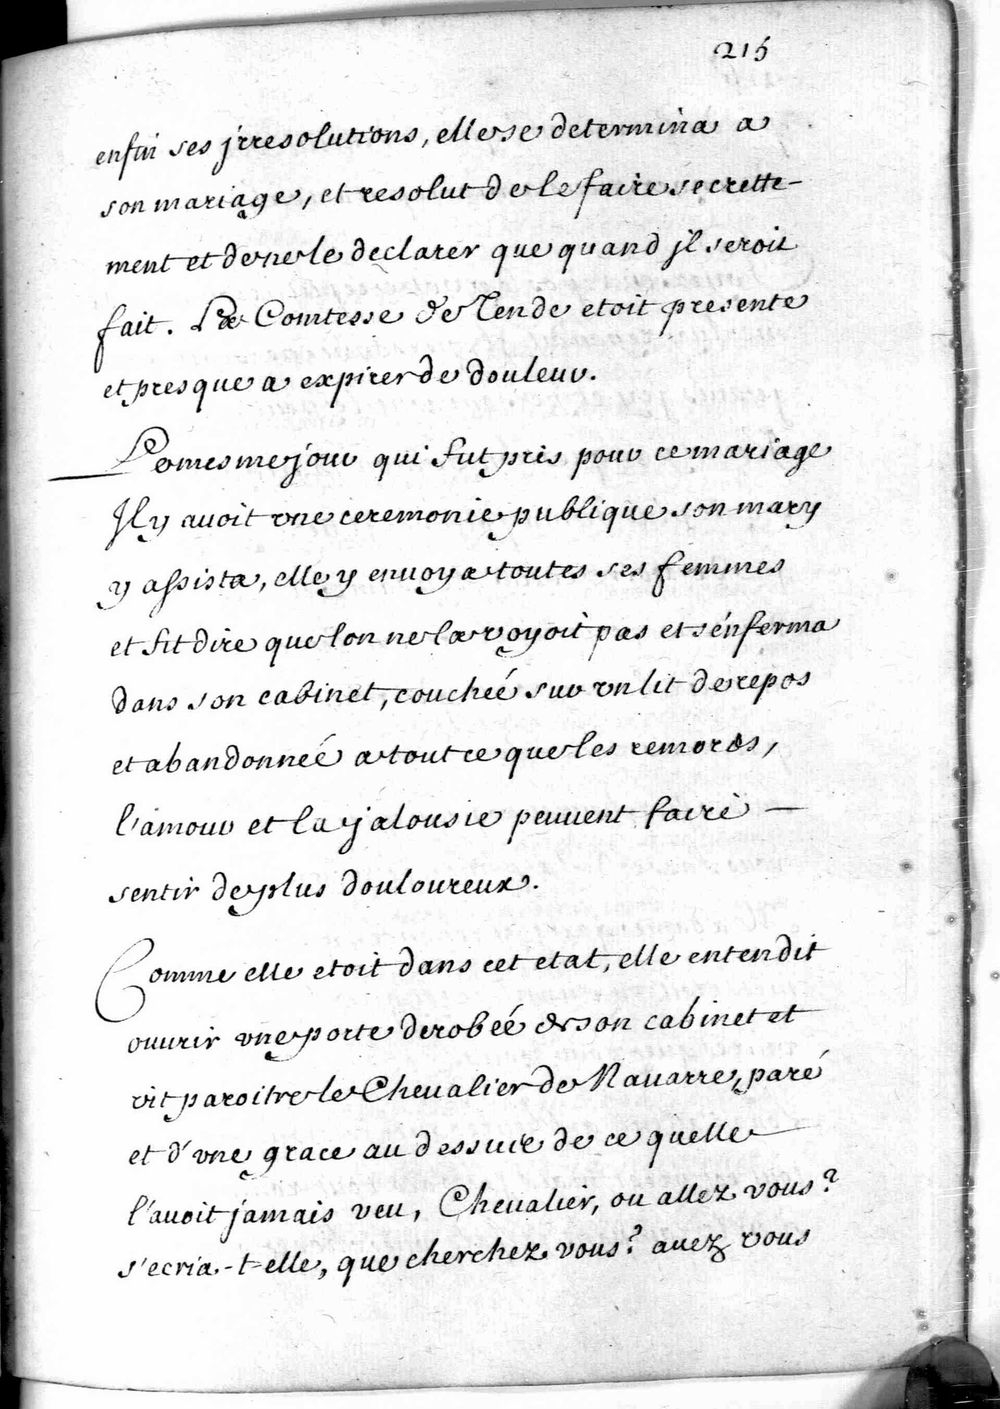 215
enfin ses jrresolutions, elle se determina a
son mariage, et resolut de le faire secrette-
ment et de ne le declarer que quand jl seroit
fait. La Comtesse de Tende etoit presente
et presque a expirer de douleur.
Le mesme jour qui fut pris pour ce mariage
Jl y auoit vne ceremonie publique son mary
y assista, elle y enuoya toutes ses femmes
et fit dire que lon ne la voyoit pas et s'enferma
dans son cabinet, coucheé sur vn lit de repos
et abandonneé a tout ce que les remords,
l'amour et la jalousie peuuent faire —
sentir de plus douloureux.
Comme elle etoit dans cet etat, elle entendit
ouurir vne porte derobeé de son cabinet et
vit paroitre le Cheualier de Nauarre, paré
et d'vne grace au dessuie de ce quelle
l'auoit jamais veu, Cheualier, ou allez vous?
s'ecria-t-elle, que cherchez vous? auez vous